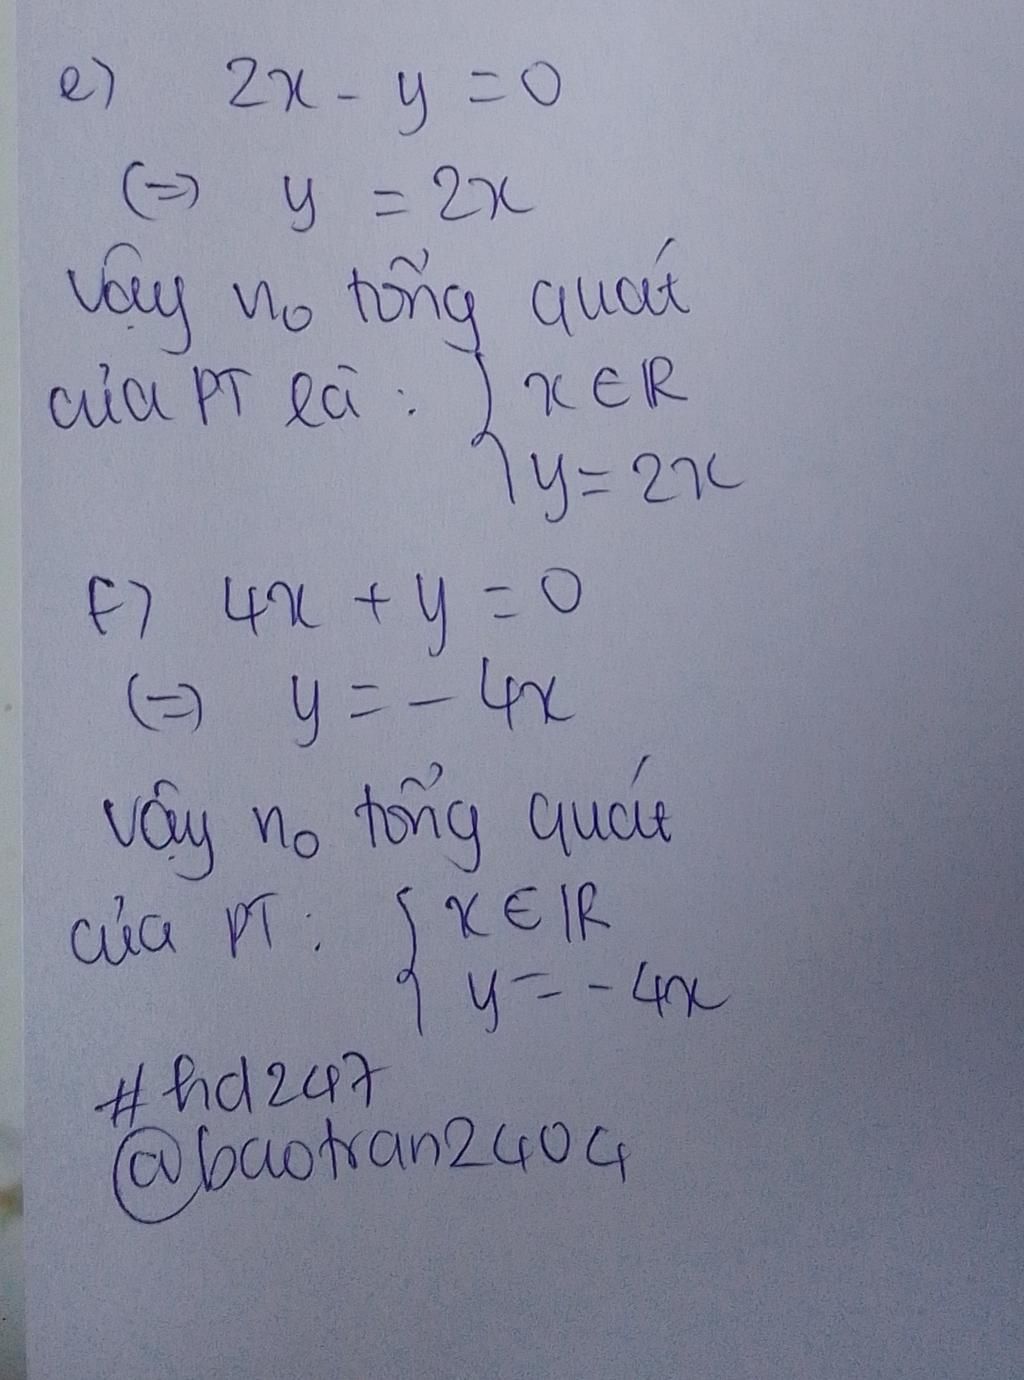 e) 2x - y = 0
(=) y = 2x
Vậy no tổng quát
của PT là : { x ∈ R
y = 2x
f) 4x + y = 0
(=) y = - 4x
Vậy no tổng quát
của PT : { x ∈ R
y = - 4x
#hd247
@baotran2404